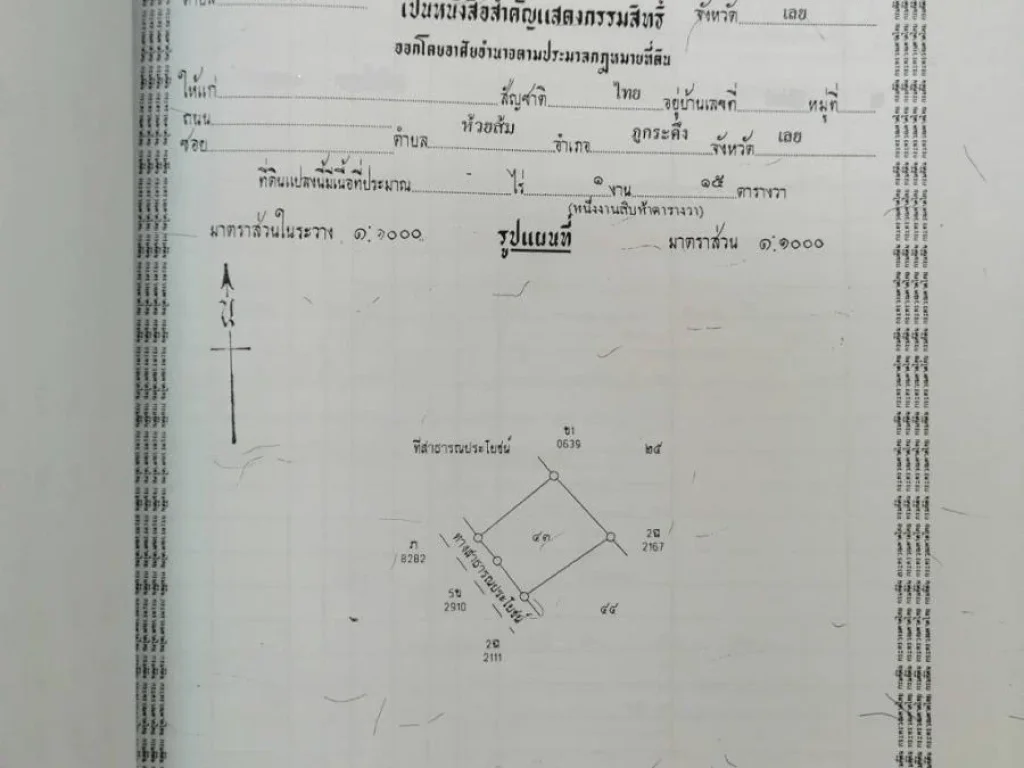 ตำบล
เป็นหนังสือสำคัญแสดงกรรมสิทธิ์
จังหวัด เลย
ออกโดยอาศัยอำนาจตามประมวลกฎหมายที่ดิน
ให้แก่ สัญชาติ ไทย อยู่บ้านเลขที่ หมู่ที่
ถนน
ซอย ตำบล ห้วยส้ม อำเภอ ภูกระดึง จังหวัด เลย
ที่ดินแปลงนี้มีเนื้อที่ประมาณ - ไร่ ๑ งาน ๑๕ ตารางวา
(หนึ่งงานสิบห้าตารางวา)
มาตราส่วนในระวาง ๑:๑๐๐๐ รูปแผนที่ มาตราส่วน ๑:๑๐๐๐
น
ที่สาธารณประโยชน์
ข1
0639
๒๕
๔๓
2ฉ
2167
ภ
8282
ทางสาธารณประโยชน์
5ข
2910
๔๔
2ฉ
2111